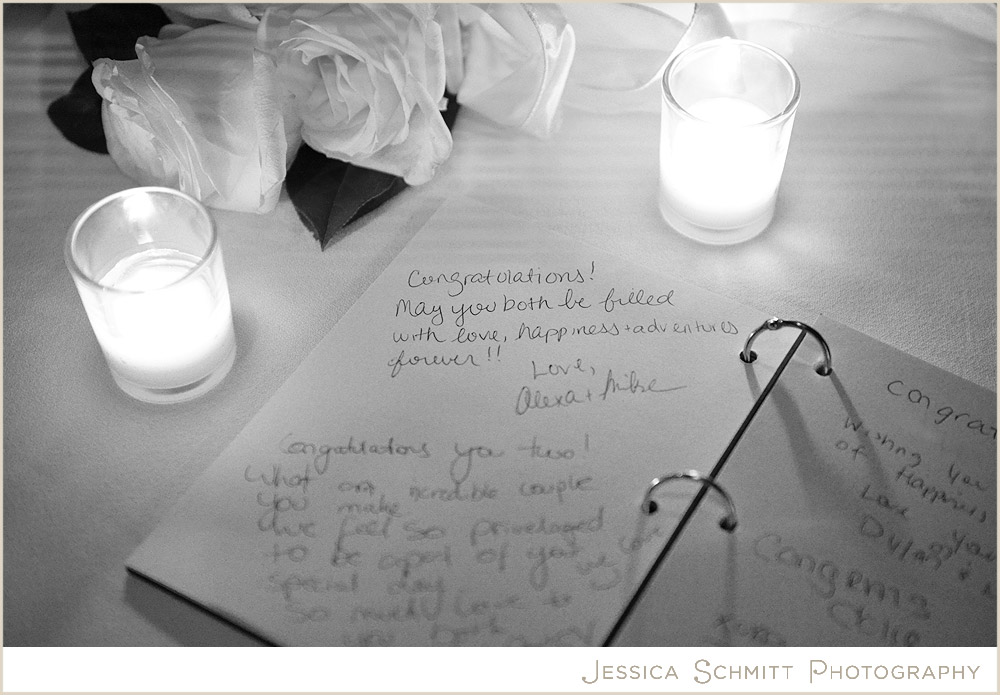 Congratulations!
May you both be filled
with love, happiness + adventures
forever!!
Love,
Alexa + Mike
Congratulations you two!
What an incredible couple
you make
We feel so priveleged
to be apart of your
special day
So much love to
you both
Congrat
Wishing you
of Happiness
Love
Dylan
Congrats
JESSICA SCHMITT PHOTOGRAPHY